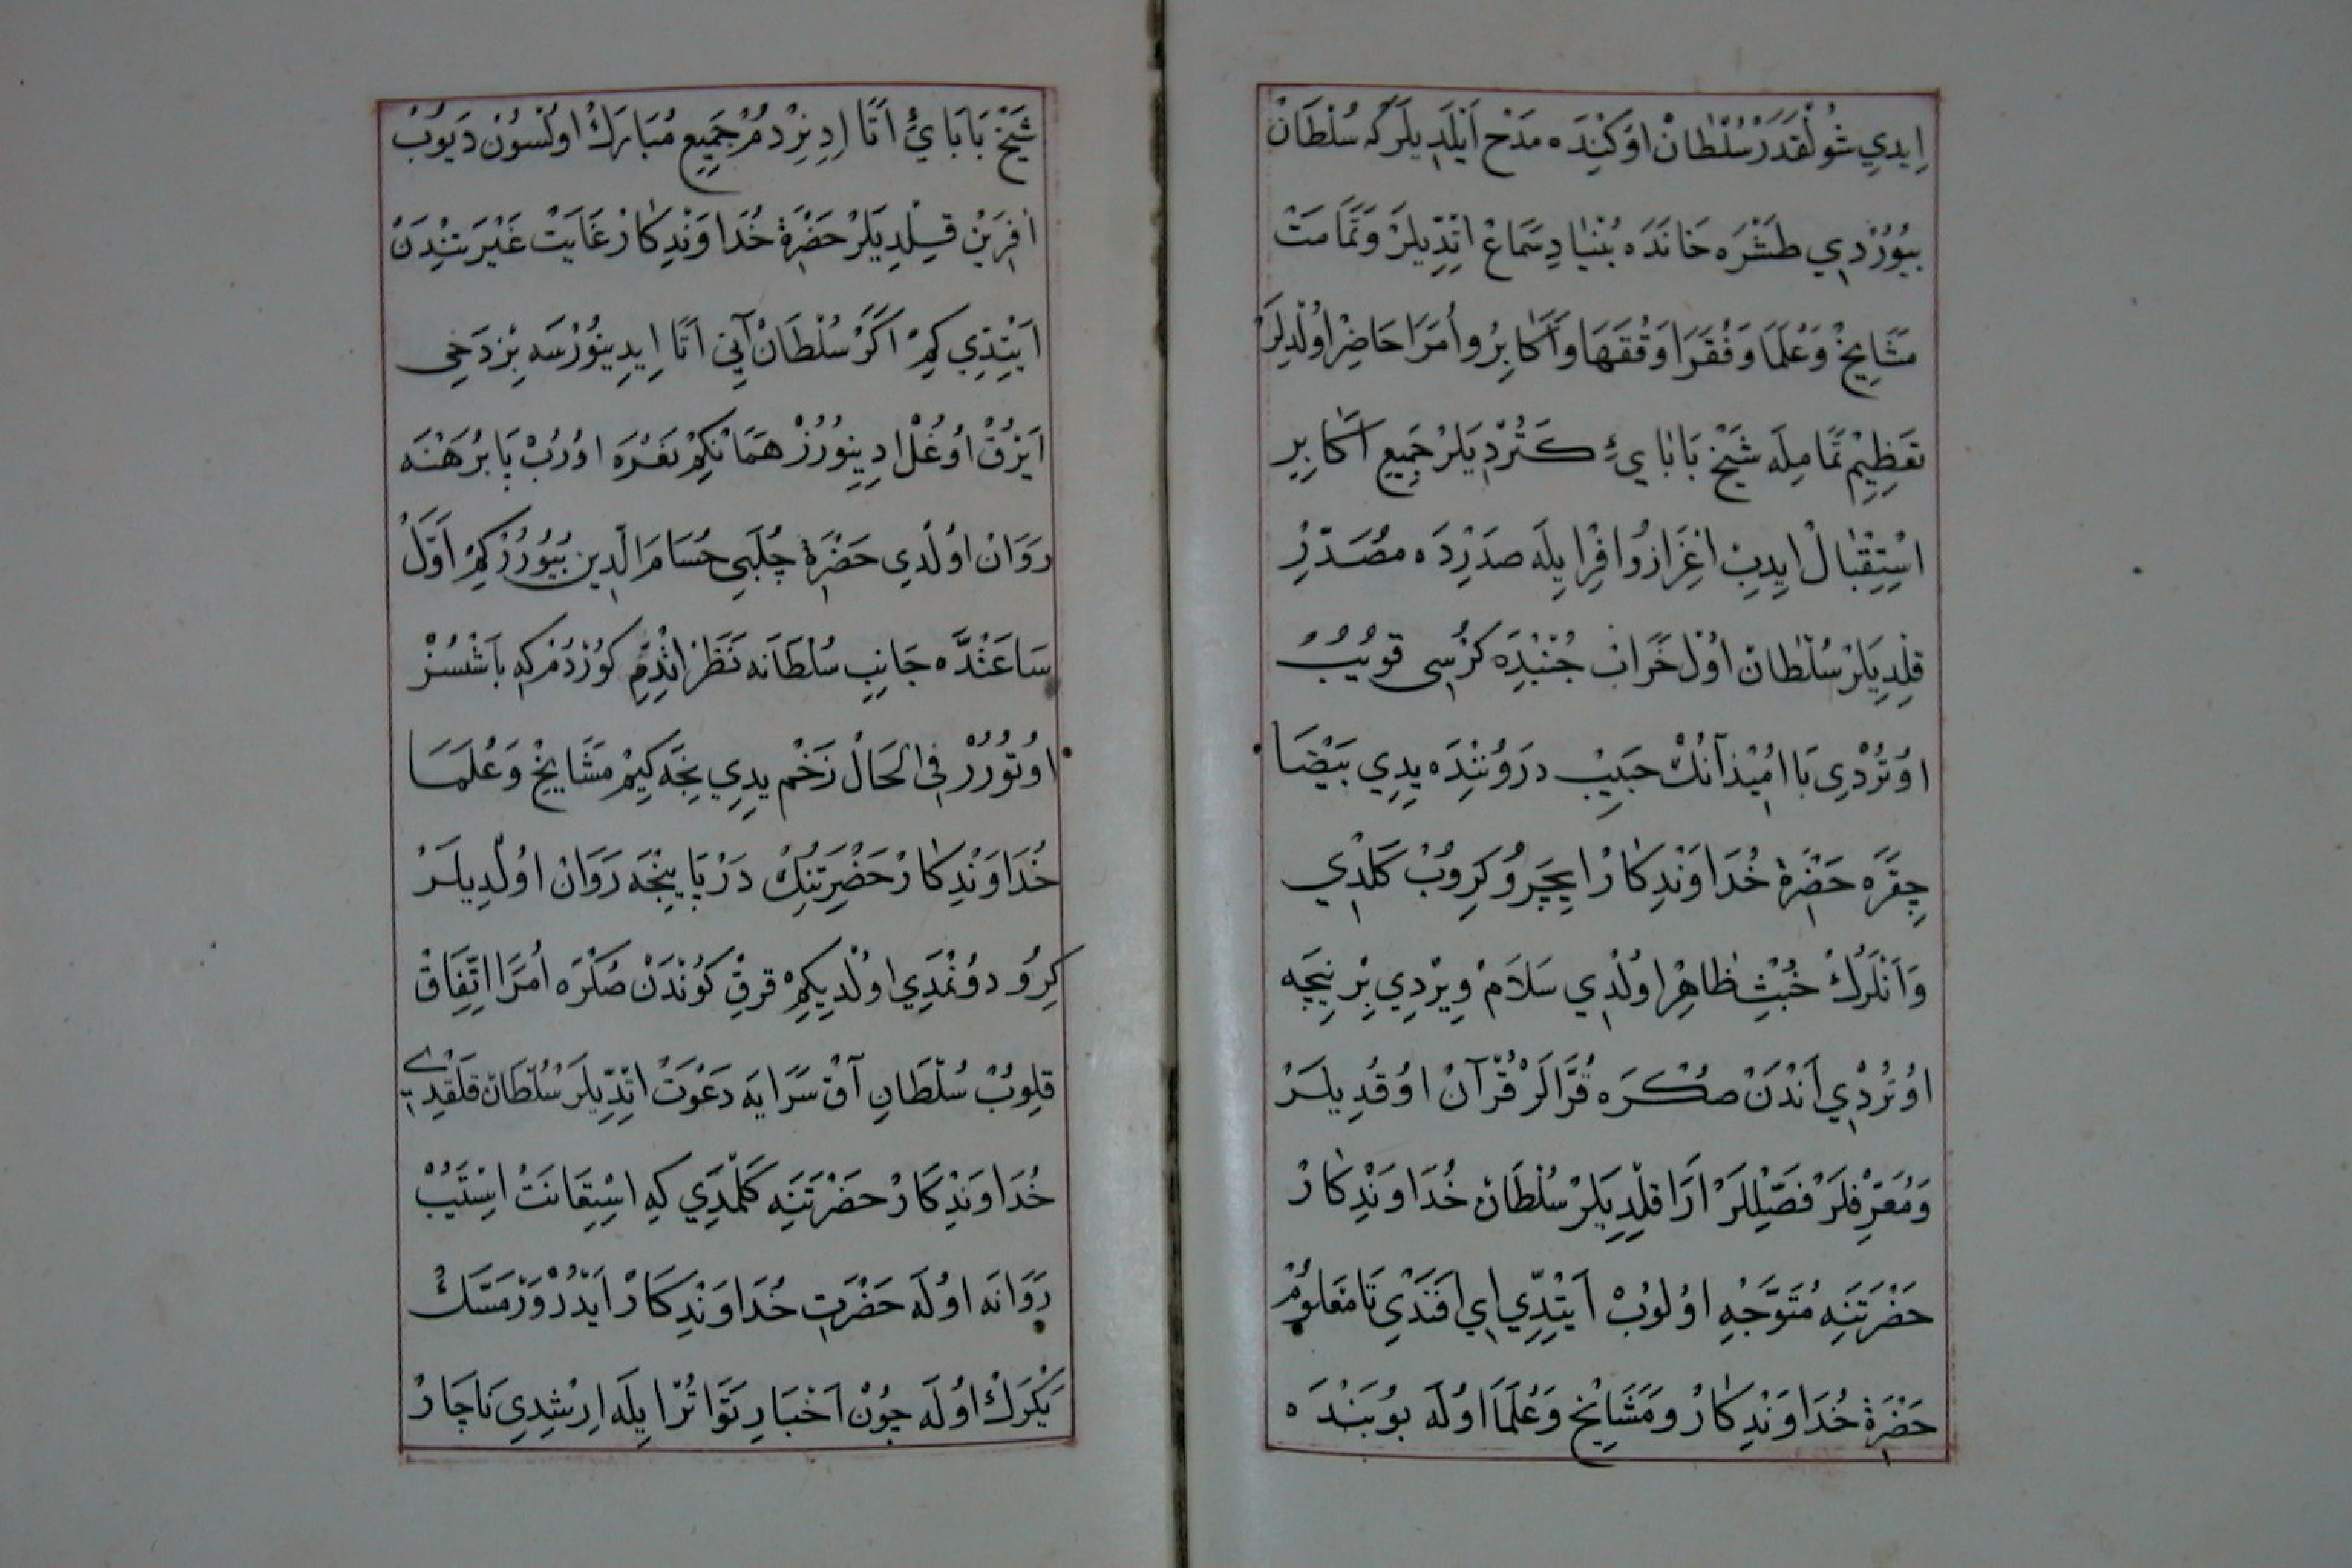 اِيدِي شُولْقَدَرْ سُلْطَانْ اوُكِنْدَه مَدْح اَيْلَدِيلَرْكَه سُلْطَانْ
بيُورْدِي طَشْرَه خَانَدَه بُنْيَادِ سَمَاعْ اِتْدِيلَرْ وَتَمَامَتْ
مَشَايِخْ وَعُلَمَا وَفُقَرَا وَفُقَهَا وَاَكَابِرُ واُمَرَا حَاضِرْ اوُلْدِلَرْ
تَعْظِيمْ تَمَامِلَه شَيْخْ بَابَايِيءِ كَتُرْدِيلَرْ جَمِيعِ اَكَابِرِ
اسْتِقْبَالْ ايِدِبْ اعْزَازْ وُافِرْ ايِلَه صَدَرْدَه مُصَدَّرْ
قِلْدِيلَرْ سُلْطَانْ اوُلْ خَرَابْ جُنْبِدَه كُرْسِى قويُبْ
اوُتُرْدِى بَا امُيْذ آنُكْ حَبِيبْ دَرَوُنِنْدَه يِدِي بَيْضَا
چِقَرَه حَضْرَةِ خُدَاوَنْدِكَارْ ايچَرُو كِرُوبْ كَلْدِي
وَاَنْلَرُكْ خُبْثِ ظَاهِرْ اوُلْدِي سَلَامْ وِيرْدِي بِرْ نِيچَه
اوُتُرْدِي اَنْدَنْ صُكْرَه قُرَّالَرْ قُرْآنْ اوُقُدِيلَرْ
وَمُعَرِّفْلَرْ فَصْلِلَرْ اَرَا قِلْدِيلَرْ سُلْطَانْ خُدَاوَنْدِكَارْ
حَضْرَتِنَه مُتَوَجِّهِ اوُلُوبْ اَيِتْدِي اىِ اَفَنْدِي تَا مَعْلوُمْ
حَضْرَةِ خُدَاوَنْدِكَارْ وَمَشَايِخْ وَعُلَمَا اوُلَه بوُ بَنْدَه
شَيْخْ بَابَايِئْ اَتَا اِدِنِرْدُمْ جَمِيعِ مُبَارَكْ اوُلْسُونْ دَيُوبْ
اٰفِرَيْنْ قِلْدِيلَرْ حَضْرَةِ خُدَاوَنْدِكَارْ غَايَتْ غَيْرَتِنْدَنْ
اَيِتْدِي كِمْ اَكَرْ سُلْطَانْ آنِي اَتَا اِيدِينُورْسَه بِزْدَخِى
اَيْرُقْ اوُغُلْ ادِينِوُرُزْ هَمَانْكِمْ نَعْرَه اوُرُبْ پَا بُرَهْنَه
رَوَانْ اوُلْدِي حَضْرَةِ چُلَبِي حُسَامَ الَّدِين بُيُورُرْ كِمْ اَوَّلْ
سَاعَتْدَه جَانِبِ سُلْطَانَه نَظَرْ اتْدِمْ كوُرْدُمْ كِه بَاشْسُزْ
اوُتوُرُرْ فِى الْحَالْ زَخْم يِدِي نِجَه كِيمْ مَشَايِخْ وَعُلَمَا
خُدَاوَنْدِكَارْ حَضْرِتِنِكْ دَرْپَاينِجَه رَوَانْ اوُلْدِيلَرْ
كِرُو دوُنْمَدِي اوُلْدِيكِمْ قِرْقْ كوُنْدَنْ صُكْرَه اُمَرَا اتِّفَاقْ
قِلوُبْ سُلْطَانِ آقْ سَرَايَه دَعْوَتْ اتْدِيلَرْ سُلْطَانْ قَلْقْدِي
خُدَاوَنْدِكَارْ حَضْرَتِنَه كَلْدِي كِه اسْتِعَانَتْ اسْتَيُبْ
رَوَانَه اوُلَه حَضْرَتِ خُدَاوَنْدِكَارْ اَيْدُرْ وَرْمَسَكْ
يَكْرَكْ اوُلَه چوُنْ اَخْبَارِ تَوَاتُرْ ايِلَه اِرِشْدِي نَاچَارْ